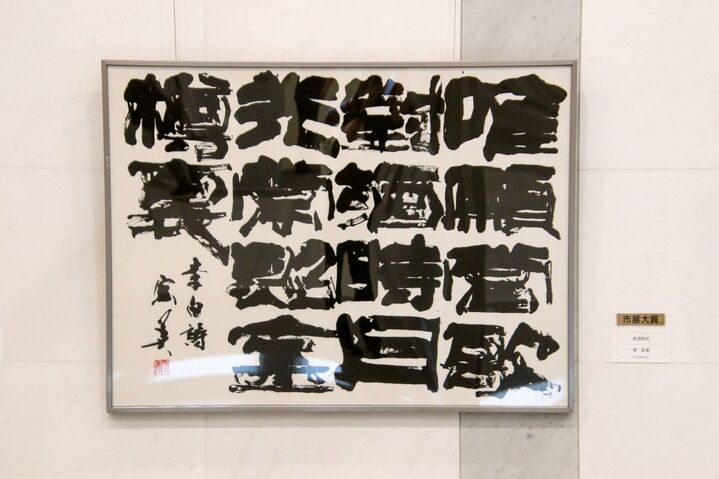 唯願當歌
對酒時月
光常照金
樽裏
李白詩
寅美
市展大賞